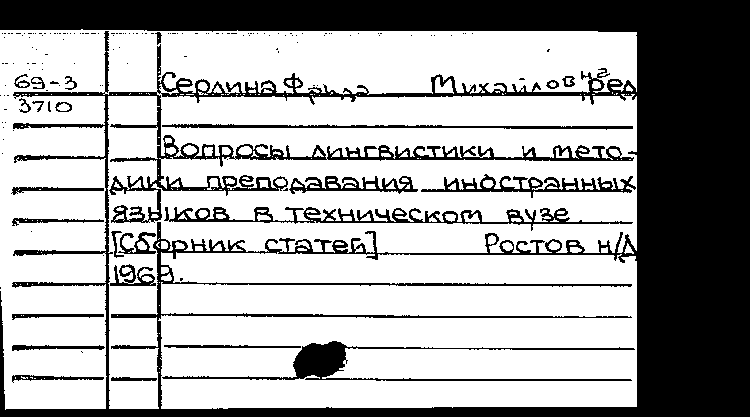 69-3
3710
Серлина, Фрида Михайловна, ред
Вопросы лингвистики и мето-
дики преподавания иностранных
языков в техническом вузе.
[Сборник статей] Ростов н/Д
1969.